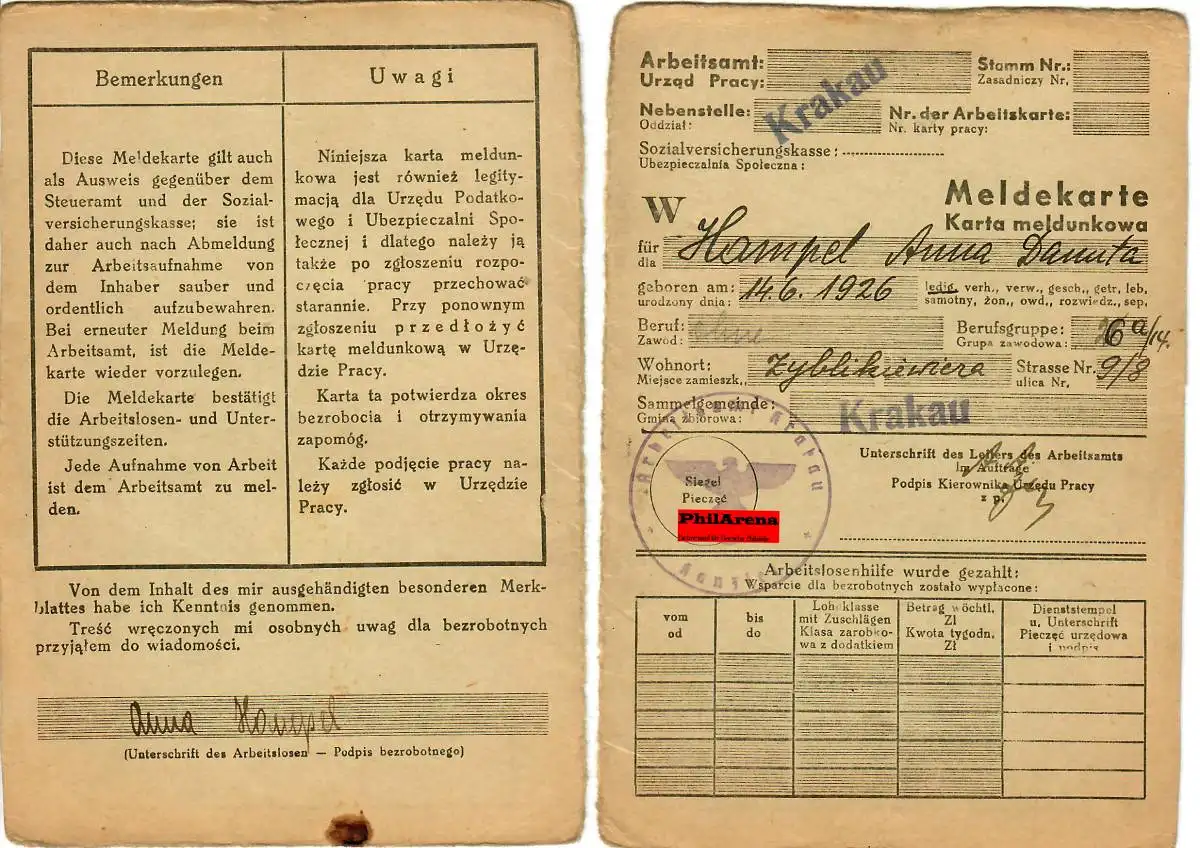 Bemerkungen
Diese Meldekarte gilt auch
als Ausweis gegenüber dem
Steueramt und der Sozial-
versicherungskasse; sie ist
daher auch nach Abmeldung
zur Arbeitsaufnahme von
dem Inhaber sauber und
ordentlich aufzubewahren.
Bei erneuter Meldung beim
Arbeitsamt, ist die Melde-
karte wieder vorzulegen.
Die Meldekarte bestätigt
die Arbeitslosen- und Unter-
stützungszeiten.
Jede Aufnahme von Arbeit
ist dem Arbeitsamt zu mel-
den.
Uwagi
Niniejsza karta meldun-
kowa jest również legity-
macją dla Urzędu Podatko-
wego i Ubezpieczalni Spo-
łecznej i dlatego należy ją
także po zgłoszeniu rozpo-
częcia pracy przechować
starannie. Przy ponownym
zgłoszeniu przedłożyć
kartę meldunkową w Urzę-
dzie Pracy.
Karta ta potwierdza okres
bezrobocia i otrzymywania
zapomóg.
Każde podjęcie pracy na-
leży zgłosić w Urzędzie
Pracy.
Von dem Inhalt des mir ausgehändigten besonderen Merk-
blattes habe ich Kenntnis genommen.
Treść wręczonych mi osobnych uwag dla bezrobotnych
przyjąłem do wiadomości.
Anna Hampel
(Unterschrift des Arbeitslosen — Podpis bezrobotnego)
Arbeitsamt:
Urząd Pracy:
Krakau
Stamm Nr.:
Zasadniczy Nr.
Nebenstelle:
Oddział:
Nr. der Arbeitskarte:
Nr. karty pracy:
Sozialversicherungskasse:
Ubezpieczalnia Społeczna:
Meldekarte
W
Karta meldunkowa
für Hampel Anna Danuta
dla
geboren am: 14.6.1926 ledig, verh., verw., gesch., getr. leb.
urodzony dnia: samotny, żon., owd., rozwiedz., sep.
Beruf: ohne Berufsgruppe: 26a/14.
Zawód: Grupa zawodowa:
Wohnort: Zyblikiewicza Strasse Nr. 9/8
Miejsce zamieszk., ulica Nr.
Sammelgemeinde: Krakau
Gmina zbiorowa:
Arbeitsamt Krakau
Siegel
Pieczęć
PhilArena
Unterschrift des Leiters des Arbeitsamts
Im Auftrage
Podpis Kierownika Urzędu Pracy
z p.
Arbeitslosenhilfe wurde gezahlt:
Wsparcie dla bezrobotnych zostało wypłacone:
vom
od
bis
do
Lohnklasse
mit Zuschlägen
Klasa zarobko-
wa z dodatkiem
Betrag wöchtl.
Zl
Kwota tygodn.
Zł
Dienststempel
u. Unterschrift
Pieczęć urzędowa
i podpis